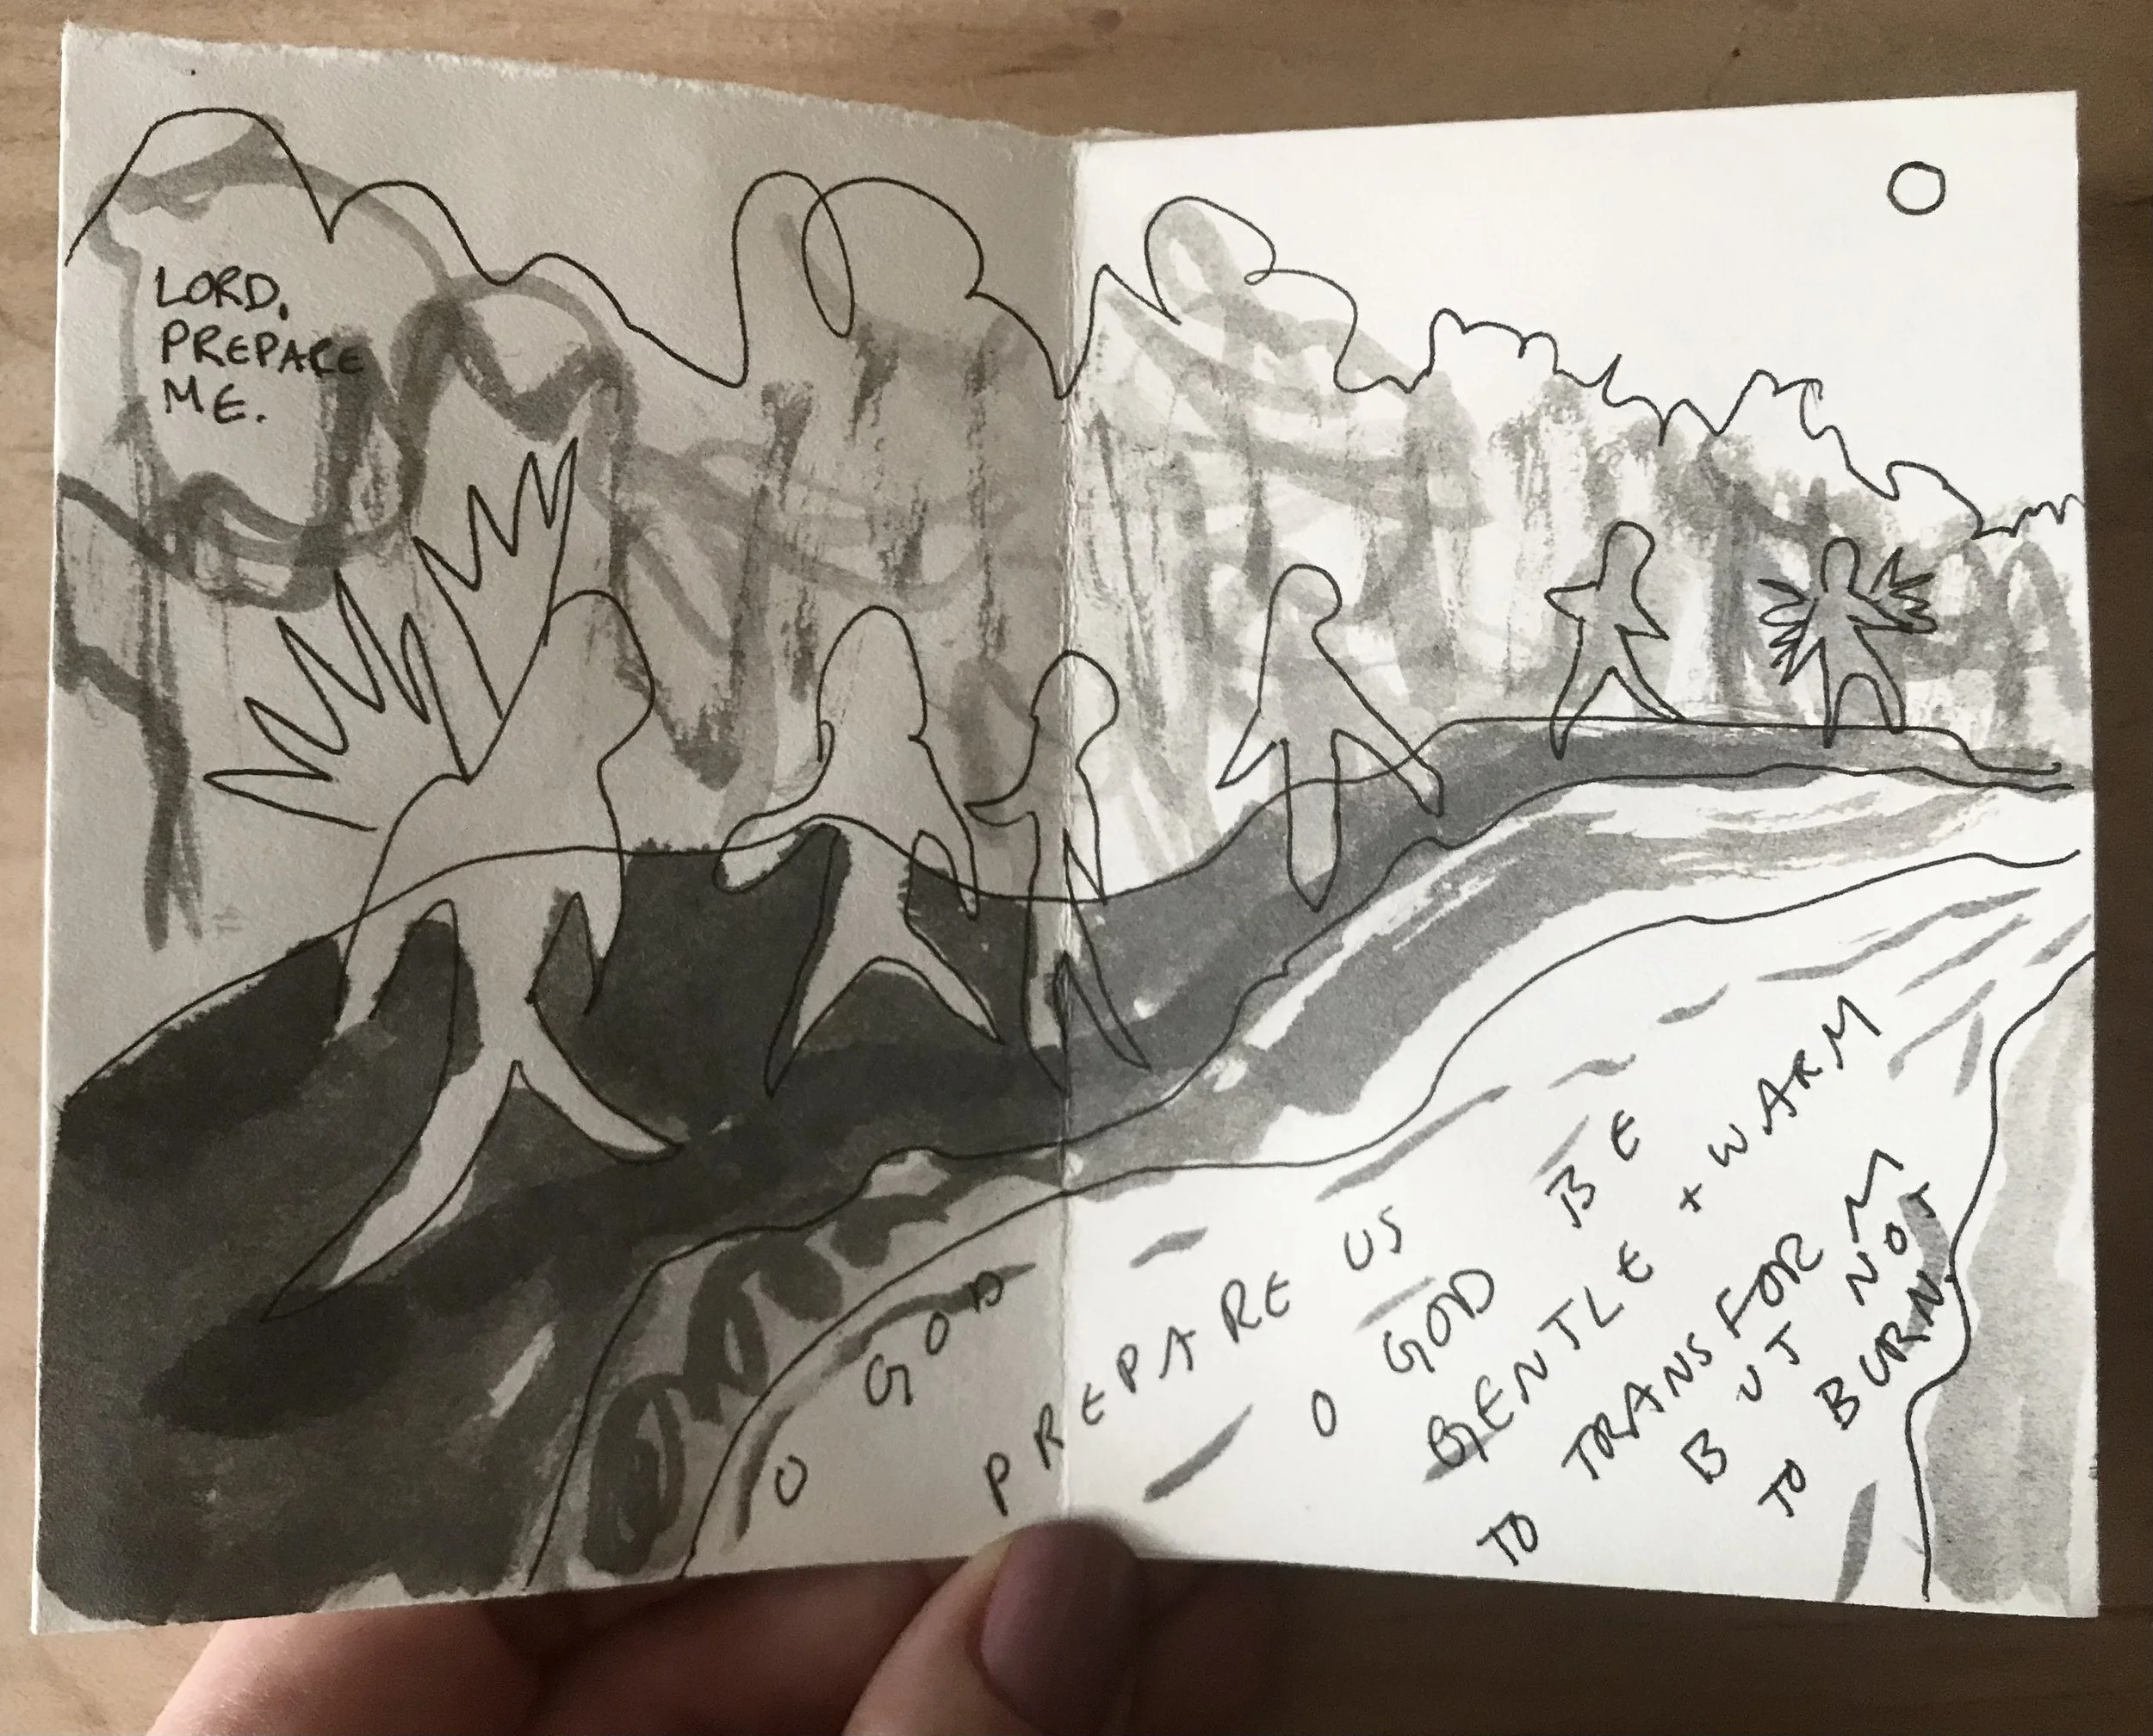 LORD,
PREPARE
ME.
O GOD
PREPARE US
O GOD BE
GENTLE + WARM
TO TRANSFORM
BUT NOT
TO BURN